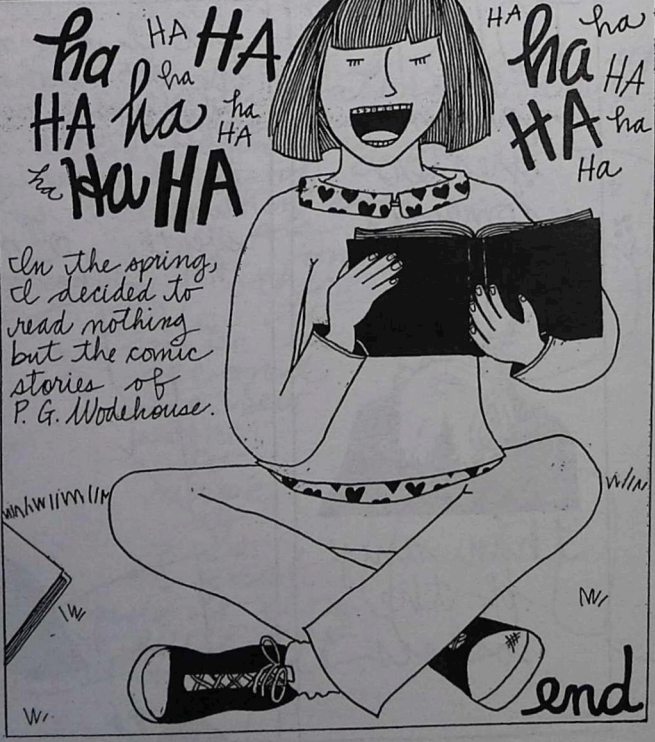 ha HA HA
HA ha ha ha
HA
ha Ha HA
HA ha ha
HA
HA ha
Ha
In the spring,
I decided to
read nothing
but the comic
stories of
P. G. Wodehouse.
end